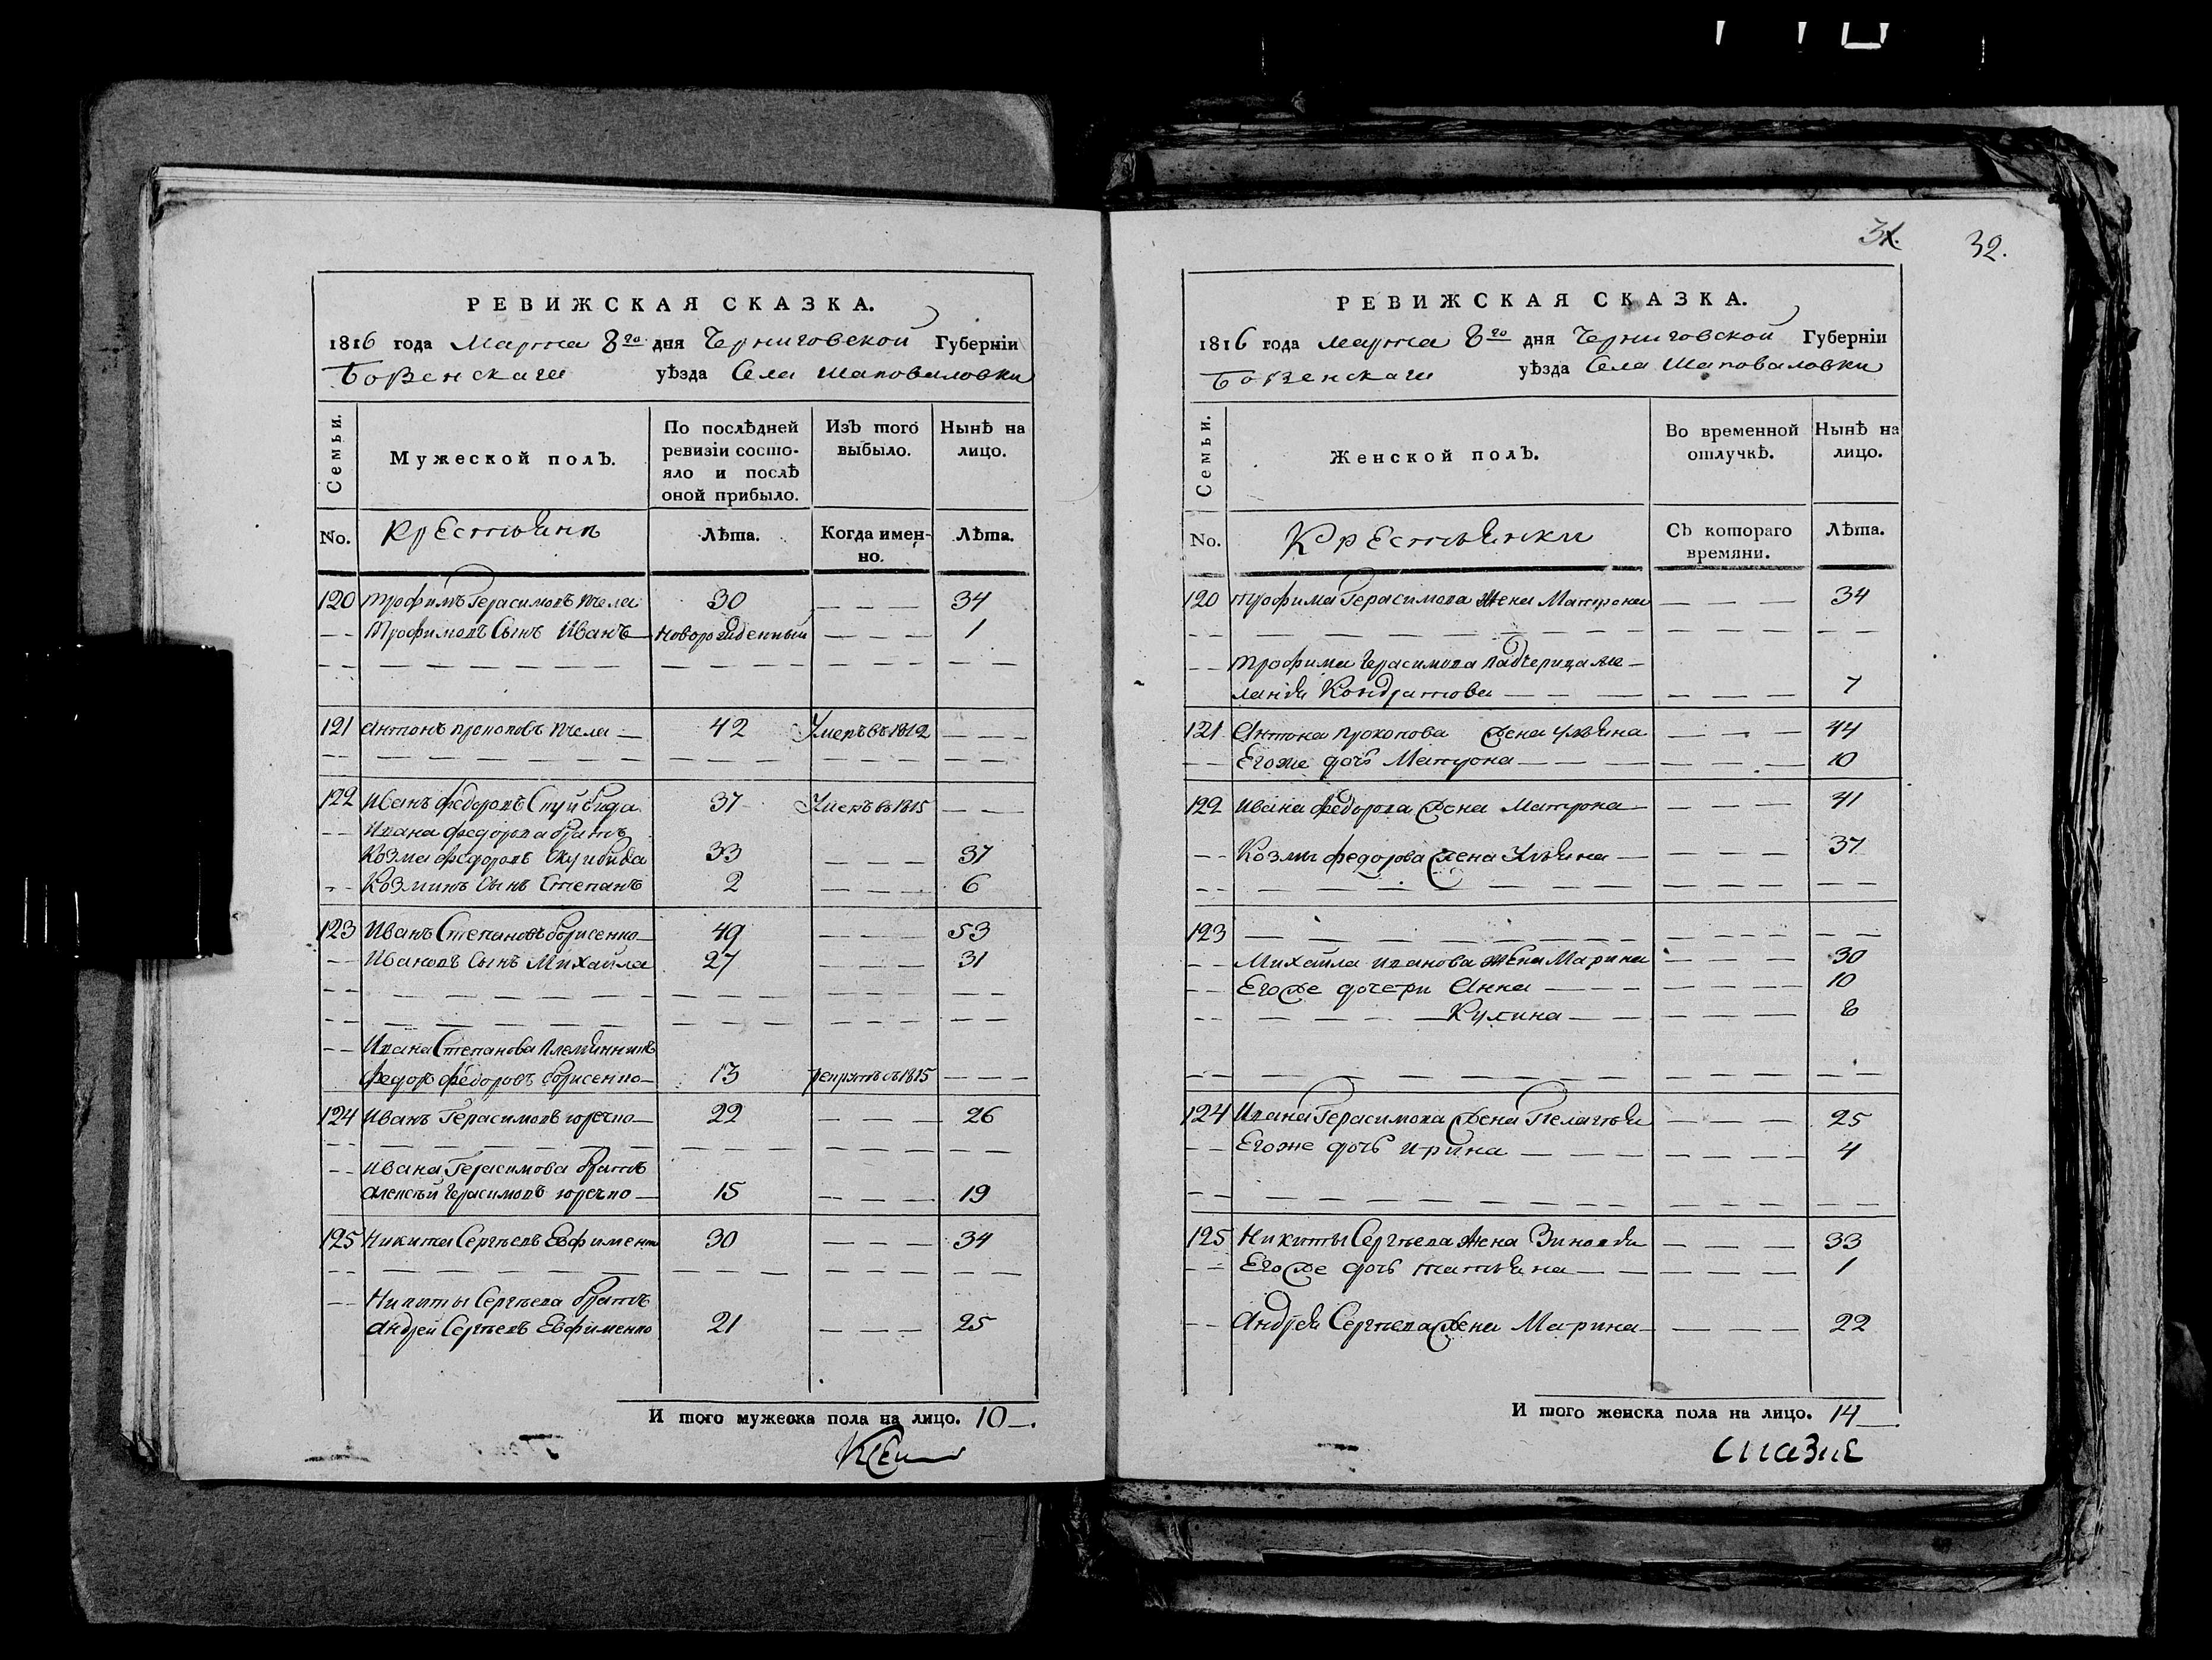 РЕВИЖСКАЯ СКАЗКА.
1816 года Марта 8го дня Черниговской Губерніи
Борзенскаги уѣзда Села Шаповаловки
Семьи.
Мужеской полъ.
По послѣдней ревизіи состояло и послѣ оной прибыло.
Изъ того выбыло.
Нынѣ на лицо.
No. Крестьянъ Лѣта. Когда именно. Лѣта.
120 Трофимъ Герасимовъ Пчела 30 — — — 34
— — Трофимовъ Сынъ Иванъ — Новорожденный — — — 1
121 Антонъ Прокоповъ Пчела — 42 Умеръ въ 1812 — — —
122 Иванъ Федоровъ 37 Умеръ въ 1815 — —
— — Ивана Федорова братъ
Козма Федоровъ 33 — — — 37
— — Козминъ Сынъ Степанъ 2 — — — 6
123 Иванъ Степановъ Борисенко — 49 — — — 53
— — Ивановъ Сынъ Михайла 27 — — — 31
— — Ивана Степанова Племянникъ
Федоръ Федоровъ Борисенко — 13 1815 — — —
124 Иванъ Герасимовъ Юрченко — 22 — — — 26
— — Ивана Герасимова братъ
Алексѣй Герасимовъ — 15 — — — 19
125 Никита Сергѣевъ Евфименко 30 — — — 34
— — Никиты Сергѣева братъ
Андрей Сергѣевъ Евфименко 21 — — — 25
И того мужеска пола на лицо. 10 —.
31.
32.
РЕВИЖСКАЯ СКАЗКА.
1816 года Марта 8го дня Черниговской Губерніи
Борзенскаги уѣзда Села Шаповаловки
Семьи.
Женской полъ.
Во временной отлучкѣ.
Нынѣ на лицо.
No. Крестьянки Съ котораго времяни. Лѣта.
120 Трофима Герасимова Жена Матрона — — — 34
— — Трофима Герасимова Падчерица Ме-
ланья Кондратова — — — 7
121 Антона Прокопова Жена Ульяна — — — 44
— — Егоже дочь Матрона — — — 10
122 Ивана Федорова Жена Матрона — — — 41
— — Козмы Федорова Жена Ульяна — — — — 37
123
— — Михайла Иванова Жена Марина — — — 30
— — Егоже дочери Анна — — — 10
— — Кулина — — — 6
124 Ивана Герасимова Жена Пелагѣя — — — 25
— — Егоже дочь Ирина — — — 4
125 Никиты Сергѣева Жена Зиновья — — — 33
— — Егоже дочь Татьяна — — — 1
— — Андрея Сергѣева Жена Марина — — — — 22
И того женска пола на лицо. 14 —